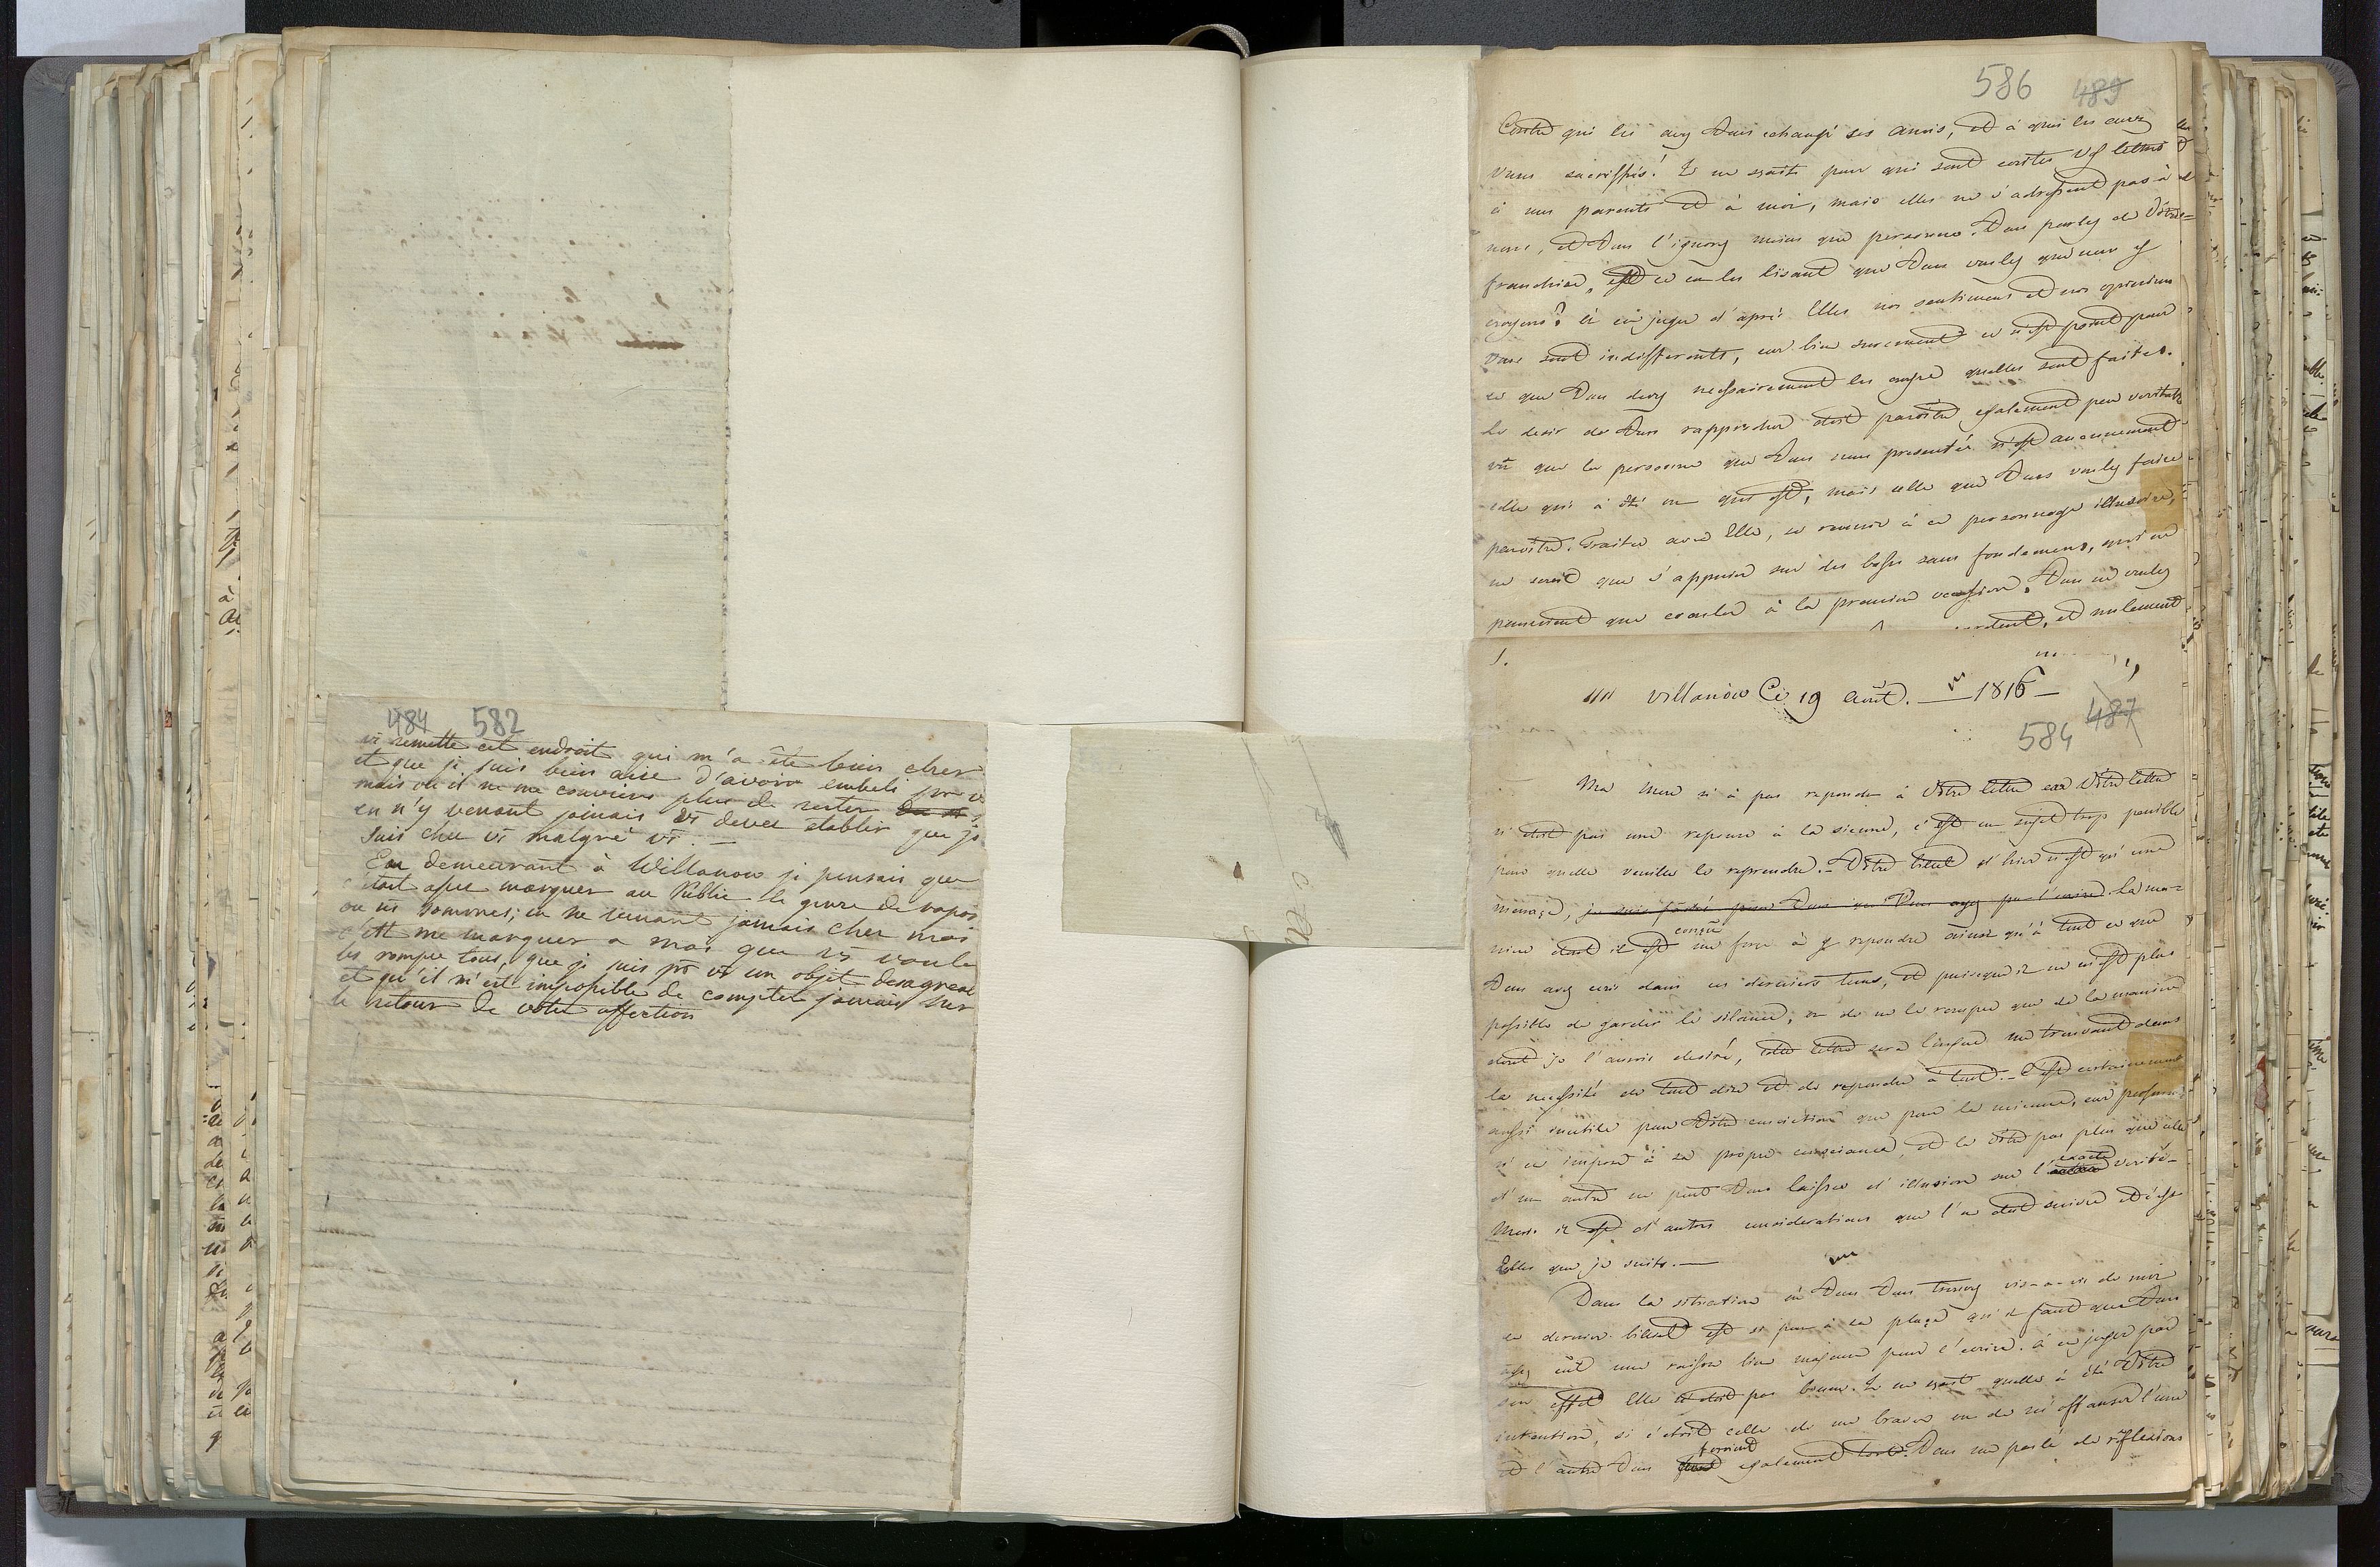 484 582
vs remettre cet endroit qui m'a été bien cher
et que je suis bien aise d'avoir embeli pr vs
mais où il ne me convient plus de rester
en n'y venant jamais vs devez établir que je
suis chez vs malgré vs. —
En demeurant à Willanow je pensais que
c'étoit assez marquer au Public le genre de rapor
où ns sommes; en ne venant jamais chez moi
c'est me marquer a moi que vs voule
les rompre tous, que je suis pr vs un objet desagreab
et qu'il m'est impossible de compter jamais sur
le retour de votre affection
586 489
Contre qui les avez Vous echangé ses amis, et à qui les avez
Vous sacrifiés! Je ne sçais pour qui sont ecrites vos lettres
à mes parents et à moi, mais elles ne s'adressent pas à
nous, et Vous l'ignorez moins que personne. Vous parlez de Vôtre
franchise, est ce en les lisant que Vous voulez que nous y
croyons? à en juger d'après Elles nos sentimens et nos opinions
Vous sont indifferents, car bien surement ce n'est point pour
ce que Vous devez necessairement les croire quelles sont faites.
Le desir de Vous rapprocher doit paroître egalement peu veritable
vû que la personne que Vous nous presentée n'est aucunement
celle qui a été ou qui est, mais celle que Vous voulez faire
paroître. Traiter avec Elle, se reunir à ce personnage illusoire,
ne seroit que s'appuier sur des bases sans fondemens, qui ne
pourroient que crouler à la premiere occasion. Vous ne voulez
et nulement
1.
Villanow Ce 19 Août. — 1816 —
584 487
Ma mere n'a pas repondu à Vôtre lettre car Vôtre lettre
n'etoit pas une reponse à la sienne, c'est un sujet trop penible
pour quelle veuille le reprendre. — Vôtre billet d'hier n'est qu'une
menace, je suis faché pour Vous que Vous ayez pu l'ecrire. La ma=
niere dont il est conçu me force à y repondre ainsi qu'à tout ce que
Vous avez ecrit dans ces derniers tems, et puisque il ne m'est plus
possible de garder le silence, ou de ne le rompre que de la maniere
dont je l'aurois desiré, cette lettre sera longue me trouvant dans
la necessité de tout dire et de repondre à tout. — C'est certainement
aussi inutile pour Vôtre conviction que pour la mienne, car personne
n'en impose à sa propre conscience, et la Vôtre pas plus que celle
d'un autre ne peut Vous laisser d'illusion sur l'exacte verité —
Mais il est d'autres considerations que l'on doit suivre et c'est
Elles que je suis. —
Dans la situation où Vous Vous trouvez vis-a-vis de moi
ce dernier billet est si peu à sa place qu'il faut que Vous
ayez eût une raison bien majeure pour l'ecrire. à en juger par
son effet Elle n'etoit pas bonne. Je ne sçais quelle à été Vôtre
intention, si c'etoit celle de me braver ou de m'offenser l'une
et l'autre Vous feroient egalement tort. Vous me parlé de réflexions